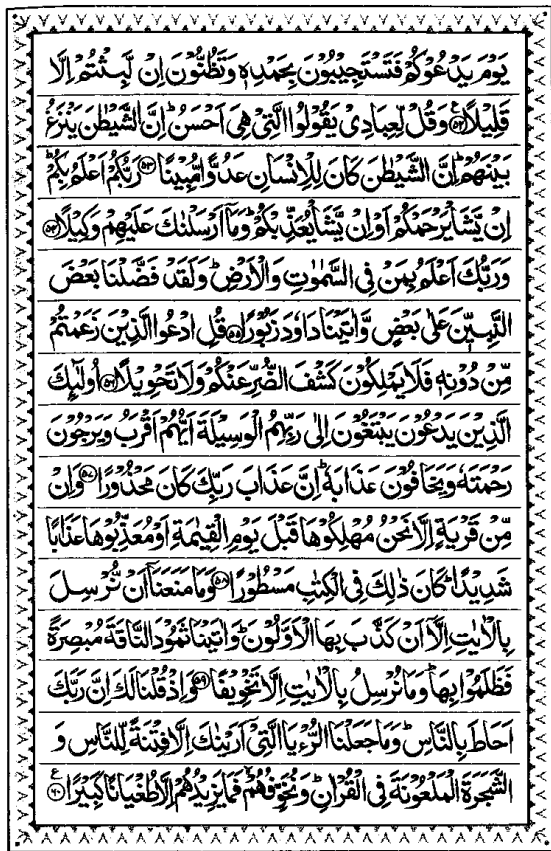 يَوْمَ يَدْعُوْكُمْ فَتَسْتَجِيْبُوْنَ بِحَمْدِهٖ وَتَظُنُّوْنَ اِنْ لَّبِثْتُمْ اِلَّا
قَلِيْلًا ﴿۵۲﴾ وَقُلْ لِّعِبَادِيْ يَقُوْلُوا الَّتِيْ هِيَ اَحْسَنُ ؕ اِنَّ الشَّيْطٰنَ يَنْزَغُ
بَيْنَهُمْ ؕ اِنَّ الشَّيْطٰنَ كَانَ لِلْاِنْسَانِ عَدُوًّا مُّبِيْنًا ﴿۵۳﴾ رَبُّكُمْ اَعْلَمُ بِكُمْ ؕ
اِنْ يَّشَاْ يَرْحَمْكُمْ اَوْ اِنْ يَّشَاْ يُعَذِّبْكُمْ ؕ وَمَاۤ اَرْسَلْنٰكَ عَلَيْهِمْ وَكِيْلًا ﴿۵۴﴾
وَرَبُّكَ اَعْلَمُ بِمَنْ فِي السَّمٰوٰتِ وَالْاَرْضِ ؕ وَلَقَدْ فَضَّلْنَا بَعْضَ
النَّبِيّٖنَ عَلٰى بَعْضٍ وَّاٰتَيْنَا دَاوٗدَ زَبُوْرًا ﴿۵۵﴾ قُلِ ادْعُوا الَّذِيْنَ زَعَمْتُمْ
مِّنْ دُوْنِهٖ فَلَا يَمْلِكُوْنَ كَشْفَ الضُّرِّ عَنْكُمْ وَلَا تَحْوِيْلًا ﴿۵۶﴾ اُولٰٓئِكَ
الَّذِيْنَ يَدْعُوْنَ يَبْتَغُوْنَ اِلٰى رَبِّهِمُ الْوَسِيْلَةَ اَيُّهُمْ اَقْرَبُ وَيَرْجُوْنَ
رَحْمَتَهٗ وَيَخَافُوْنَ عَذَابَهٗ ؕ اِنَّ عَذَابَ رَبِّكَ كَانَ مَحْذُوْرًا ﴿۵۷﴾ وَاِنْ
مِّنْ قَرْيَةٍ اِلَّا نَحْنُ مُهْلِكُوْهَا قَبْلَ يَوْمِ الْقِيٰمَةِ اَوْ مُعَذِّبُوْهَا عَذَابًا
شَدِيْدًا ؕ كَانَ ذٰلِكَ فِي الْكِتٰبِ مَسْطُوْرًا ﴿۵۸﴾ وَمَا مَنَعَنَاۤ اَنْ نُّرْسِلَ
بِالْاٰيٰتِ اِلَّاۤ اَنْ كَذَّبَ بِهَا الْاَوَّلُوْنَ ؕ وَاٰتَيْنَا ثَمُوْدَ النَّاقَةَ مُبْصِرَةً
فَظَلَمُوْا بِهَا ؕ وَمَا نُرْسِلُ بِالْاٰيٰتِ اِلَّا تَخْوِيْفًا ﴿۵۹﴾ وَاِذْ قُلْنَا لَكَ اِنَّ رَبَّكَ
اَحَاطَ بِالنَّاسِ ؕ وَمَا جَعَلْنَا الرُّءْيَا الَّتِيْۤ اَرَيْنٰكَ اِلَّا فِتْنَةً لِّلنَّاسِ وَ
الشَّجَرَةَ الْمَلْعُوْنَةَ فِي الْقُرْاٰنِ ؕ وَنُخَوِّفُهُمْ ۙ فَمَا يَزِيْدُهُمْ اِلَّا طُغْيَانًا كَبِيْرًا ﴿۶۰﴾ ع